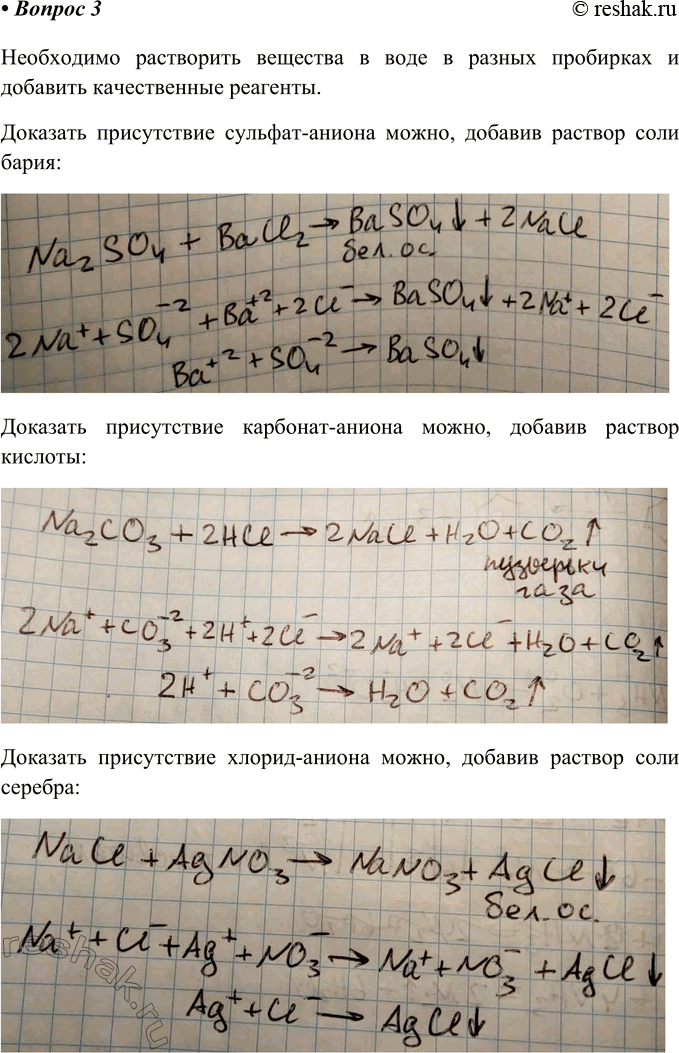 • Вопрос 3
© reshak.ru
Необходимо растворить вещества в воде в разных пробирках и
добавить качественные реагенты.
Доказать присутствие сульфат-аниона можно, добавив раствор соли
бария:
Na₂SO₄ + BaCl₂ → BaSO₄↓ + 2NaCl
бел. ос.
2Na⁺ + SO₄⁻² + Ba⁺² + 2Cl⁻ → BaSO₄↓ + 2Na⁺ + 2Cl⁻
Ba⁺² + SO₄⁻² → BaSO₄↓
Доказать присутствие карбонат-аниона можно, добавив раствор
кислоты:
Na₂CO₃ + 2HCl → 2NaCl + H₂O + CO₂↑
пузырьки
газа
2Na⁺ + CO₃⁻² + 2H⁺ + 2Cl⁻ → 2Na⁺ + 2Cl⁻ + H₂O + CO₂↑
2H⁺ + CO₃⁻² → H₂O + CO₂↑
Доказать присутствие хлорид-аниона можно, добавив раствор соли
серебра:
NaCl + AgNO₃ → NaNO₃ + AgCl↓
бел. ос.
Na⁺ + Cl⁻ + Ag⁺ + NO₃⁻ → Na⁺ + NO₃⁻ + AgCl↓
Ag⁺ + Cl⁻ → AgCl↓
reshak.ru